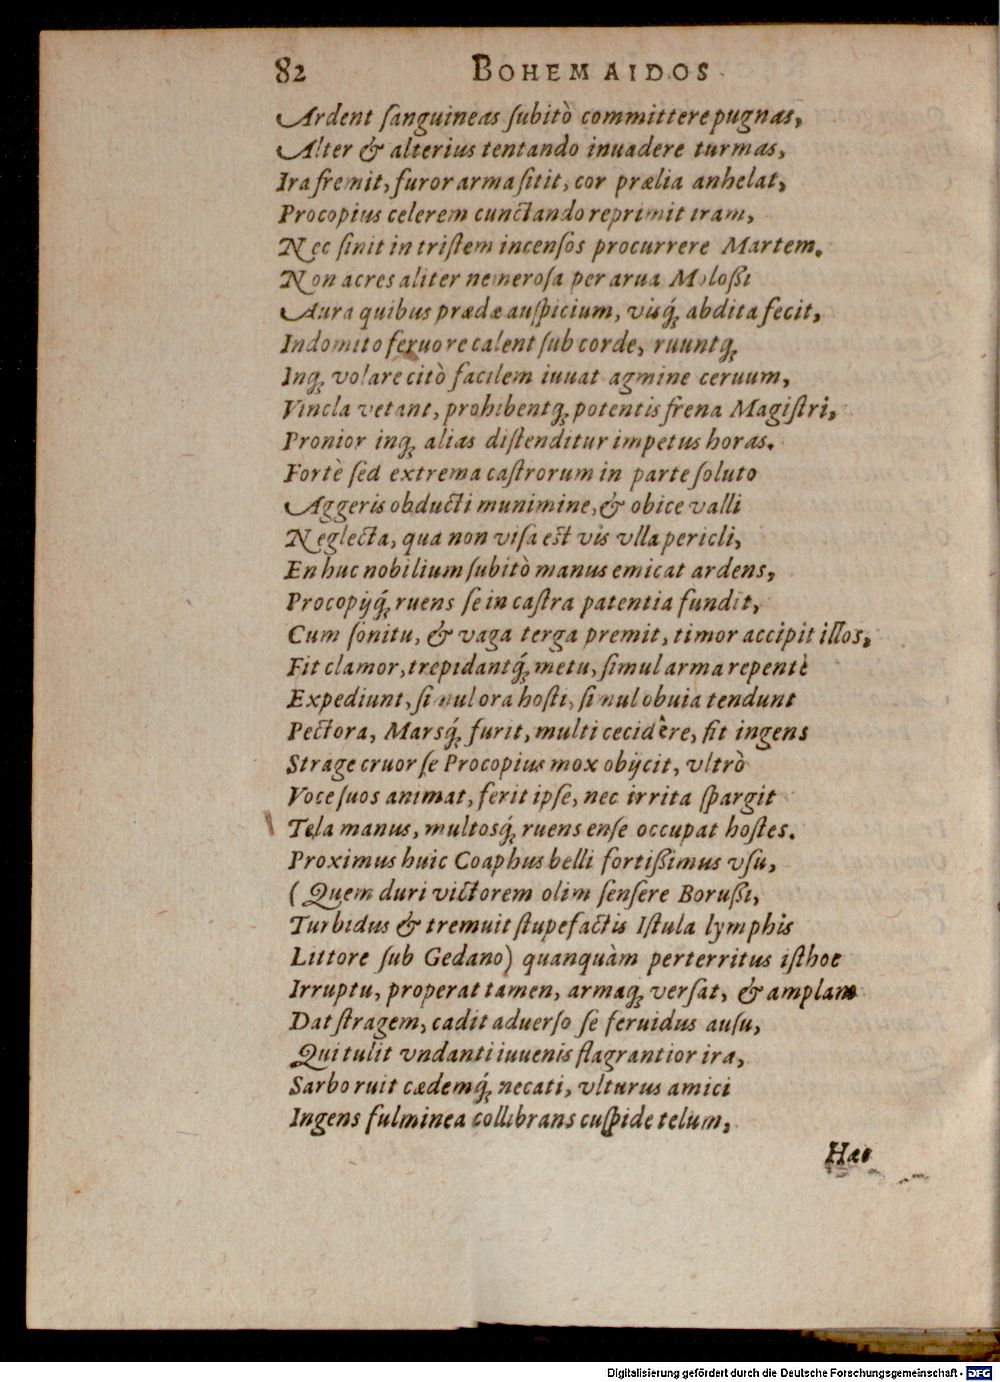 82 BOHEMAIDOS
Ardent ſanguineas ſubitò committere pugnas,
Alter & alterius tentando inuadere turmas,
Ira fremit, furor arma ſitit, cor prælia anhelat,
Procopius celerem cunctando reprimit iram,
Nec ſinit in triſtem incenſos procurrere Martem.
Non acres aliter nemeroſa per arua Moloßi
Aura quibus prædæ auſpicium, viſq́; abdita fecit,
Indomito feruore calent ſub corde, ruuntq;
Inq; volare citò facilem iuuat agmine ceruum,
Vincla vetant, prohibentq; potentis frena Magiſtri,
Pronior inq; alias diſtenditur impetus horas.
Fortè ſed extrema caſtrorum in parte ſoluto
Aggeris obducti munimine, & obice valli
Neglecta, qua non viſa eſt vis vlla pericli,
En huc nobilium ſubitò manus emicat ardens,
Procopijq́; ruens ſe in caſtra patentia fundit,
Cum ſonitu, & vaga terga premit, timor accipit illos,
Fit clamor, trepidantq́; metu, ſimul arma repentè
Expediunt, ſimul ora hoſti, ſimul obuia tendunt
Pectora, Marsq́; furit, multi cecidêre, fit ingens
Strage cruor ſe Procopius mox obijcit, vltrò
Voce ſuos animat, ferit ipſe, nec irrita ſpargit
Tela manus, multosq́; ruens enſe occupat hoſtes.
Proximus huic Coaphus belli fortißimus vſu,
(Quem duri victorem olim ſenſere Borußi,
Turbidus & tremuit ſtupefactis Iſtula lymphis
Littore ſub Gedano) quanquàm perterritus iſthoc
Irruptu, properat tamen, armaq; verſat, & amplam
Dat ſtragem, cadit aduerſo ſe feruidus auſu,
Qui tulit vndanti iuuenis flagrantior ira,
Sarbo ruit cædemq́; necati, vlturus amici
Ingens fulminea collibrans cuſpide telum,
Hac
Digitalisierung gefördert durch die Deutsche Forschungsgemeinschaft - DFG